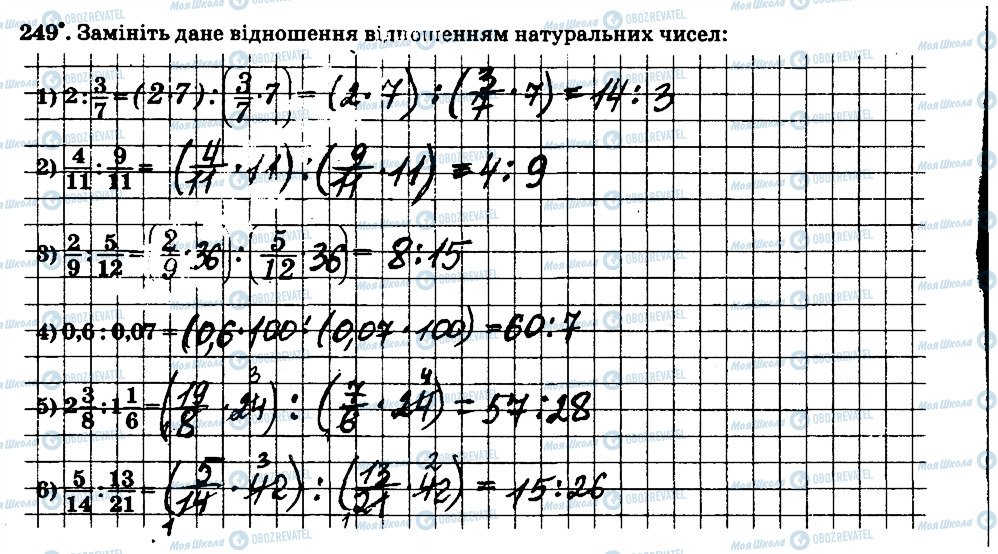 249°. Замініть дане відношення відношенням натуральних чисел:
1) 2 : 3/7 = (2·7) : (3/7·7) = (2·7) : (3/7·7) = 14 : 3
2) 4/11 : 9/11 = (4/11·11) : (9/11·11) = 4 : 9
3) 2/9 : 5/12 = (2/9·36) : (5/12·36) = 8 : 15
4) 0,6 : 0,07 = (0,6·100 : (0,07·100) = 60 : 7
5) 2 3/8 : 1 1/6 = (19/8·24) : (7/6·24) = 57 : 28
6) 5/14 : 13/21 = (5/14·42) : (13/21·42) = 15 : 26